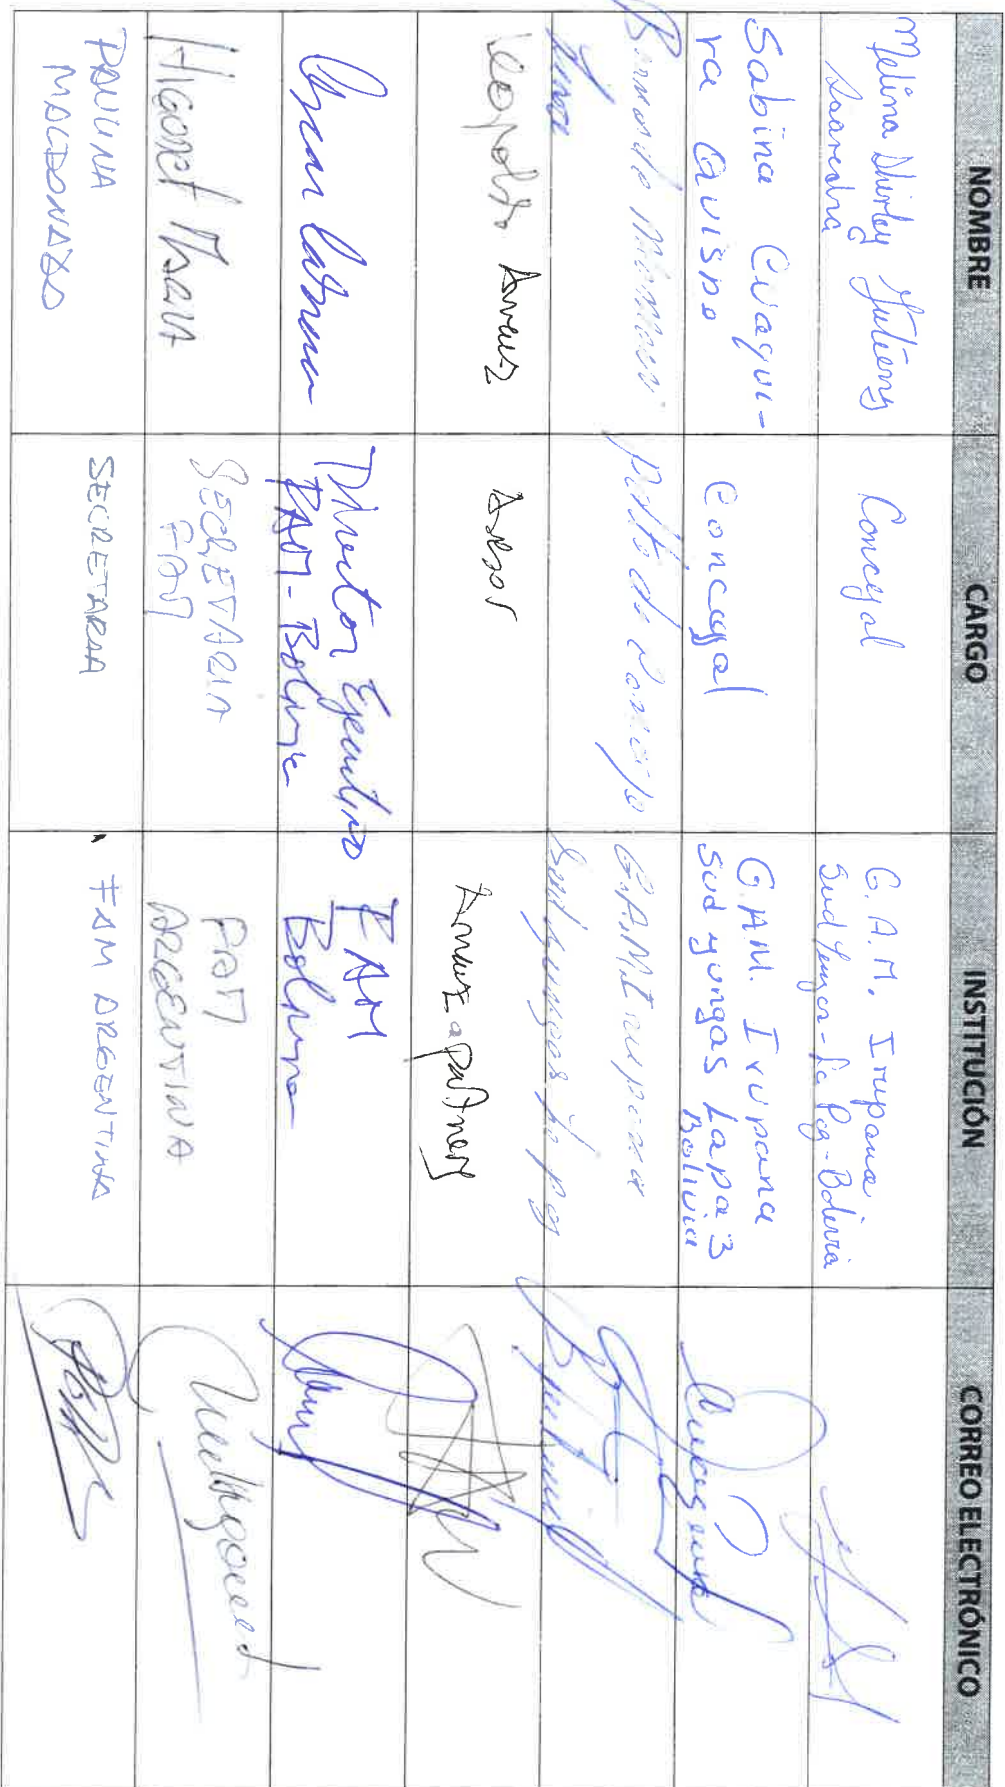 NOMBRE CARGO INSTITUCIÓN CORREO ELECTRÓNICO
Melina Shirley Gutierrez
Saavedra
Concejal
G.A.M. Irupana
Sud Yungas - La Paz - Bolivia
Sabina Cuaqui-
ra Quispe
Concejal
G.AM. Irupana
Sud yungas Lapa3
Bolivia
Bernardo Mamani
G.A.M Irupana
Sud yungas La paz
Leopoldo Arauz
Asesor
Arauz & partners
Director Ejecutivo
FAM - Bolivia
FAM
Bolivia
HIGONET MARIA
SECRETARIA
FAM
FAM
ARGENTINA
PAULINA
MALDONADO
SECRETARIA
FAM ARGENTINA